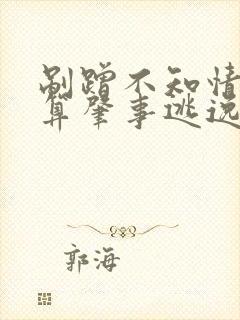 剐蹭不知情
算肇事逃逸
郭海